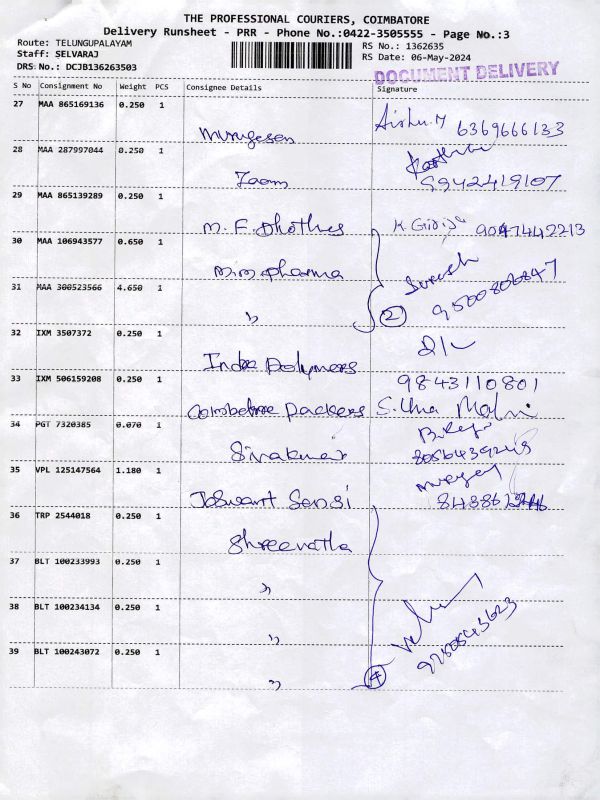 THE PROFESSIONAL COURIERS, COIMBATORE
Delivery Runsheet - PRR - Phone No.:0422-3505555 - Page No.:3
Route: TELUNGUPALAYAM
Staff: SELVARAJ
DRS No.: DCJB136263503
RS No.: 1362635
RS Date: 06-May-2024
DOCUMENT DELIVERY
S No Consignment No Weight PCS Consignee Details Signature
27 MAA 865169136 0.250 1
Murugesan 6369666133
28 MAA 287997044 0.250 1
9942419107
29 MAA 865139289 0.250 1
M. F. 9047442213
30 MAA 106943577 0.650 1
pharma Suresh
31 MAA 300523566 4.650 1
" 2 9500806847
32 IXM 3507372 0.250 1
Polymers
33 IXM 506159208 0.250 1 9843110801
Coimbatore Packers
34 PGT 7320385 0.070 1
Sivakumar
35 VPL 125147564 1.180 1
36 TRP 2544018 0.250 1
Shreevatha
37 BLT 100233993 0.250 1
"
38 BLT 100234134 0.250 1
"
39 BLT 100243072 0.250 1
" 4